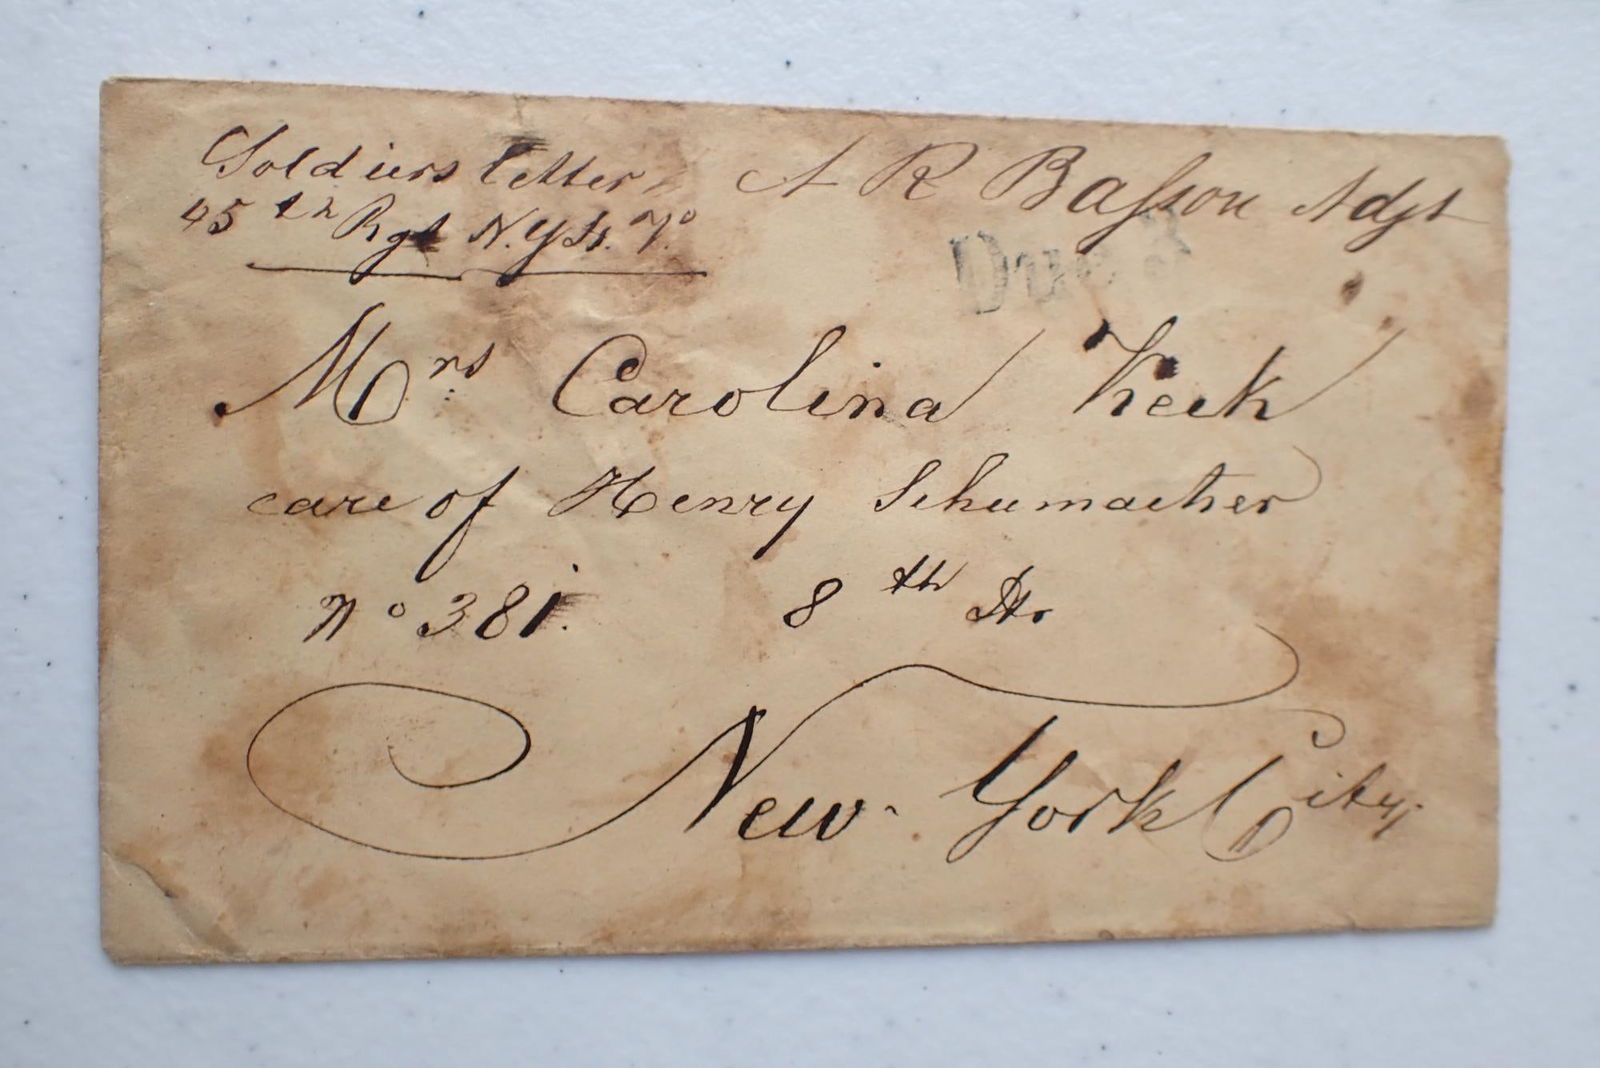 Soldiers letter A R Basson Adjt
45th Rgt N.Y.S. Vo
Mrs Carolina Keck
care of Henry Schumacher
No 381. 8th Str
New York City